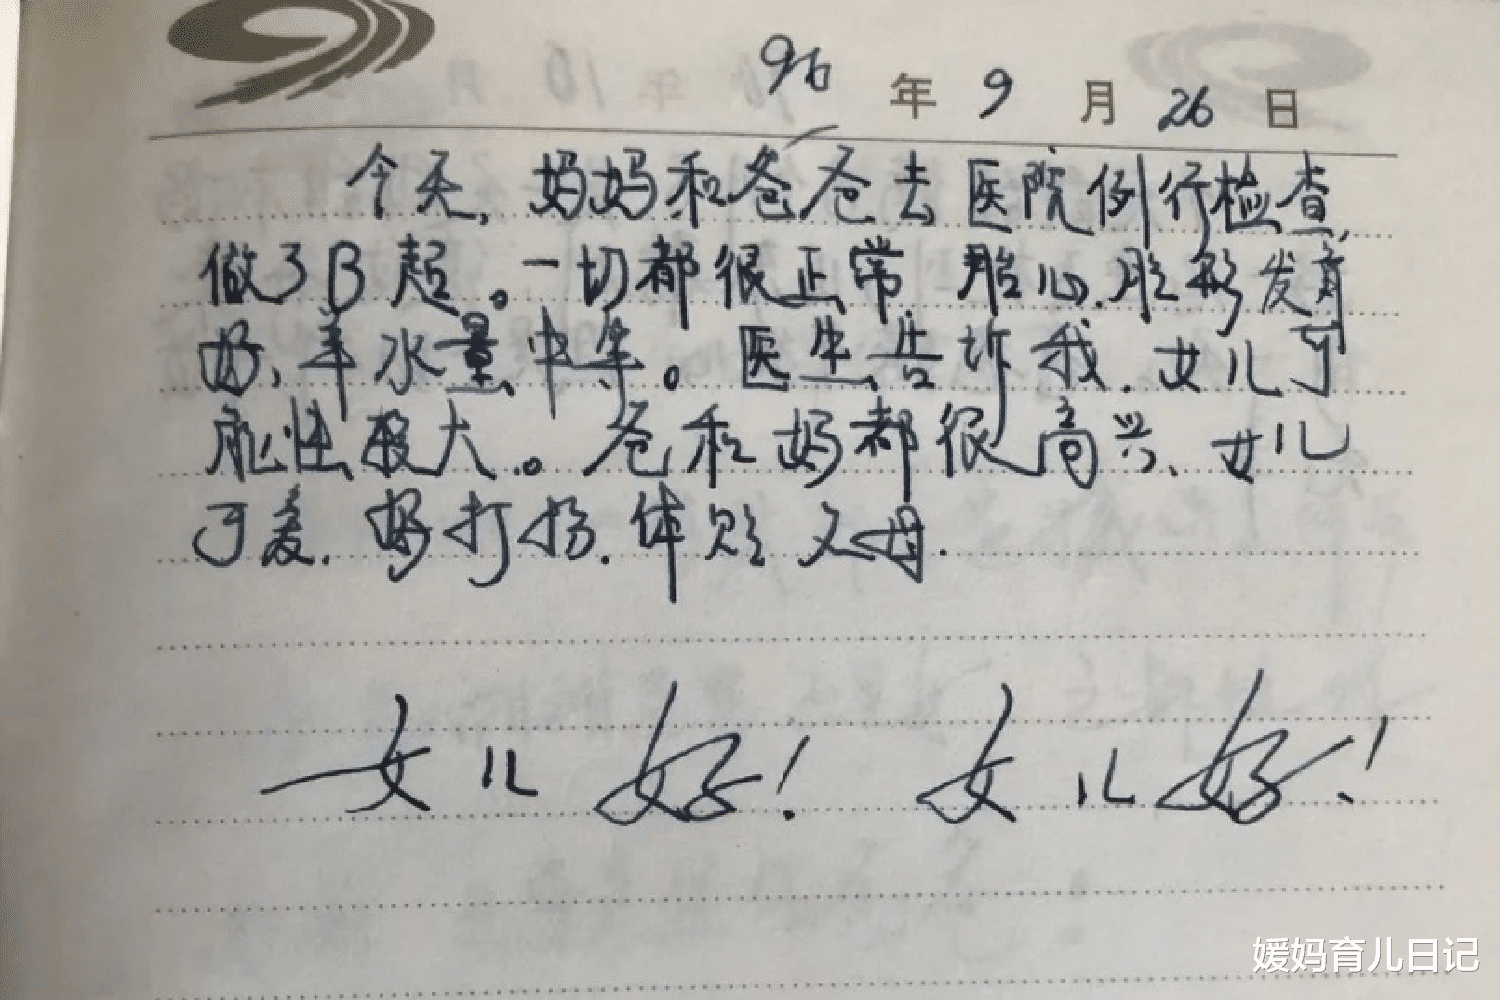 96年9月26日
今天,妈妈和爸爸去医院例行检查,
做了B超。一切都很正常,胎心.胎形发育
好,羊水量中等。医生告诉我.女儿可
能性较大。爸和妈都很高兴、女儿
可爱.好打扮.体贴父母.
女儿好!女儿好!
媛妈育儿日记